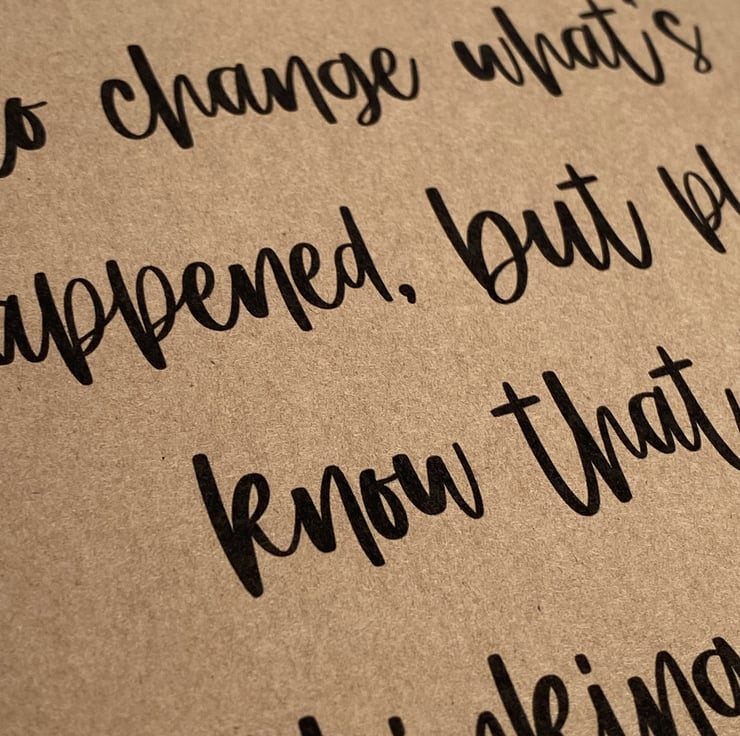 to change what's
appened, but pl
know that
inking